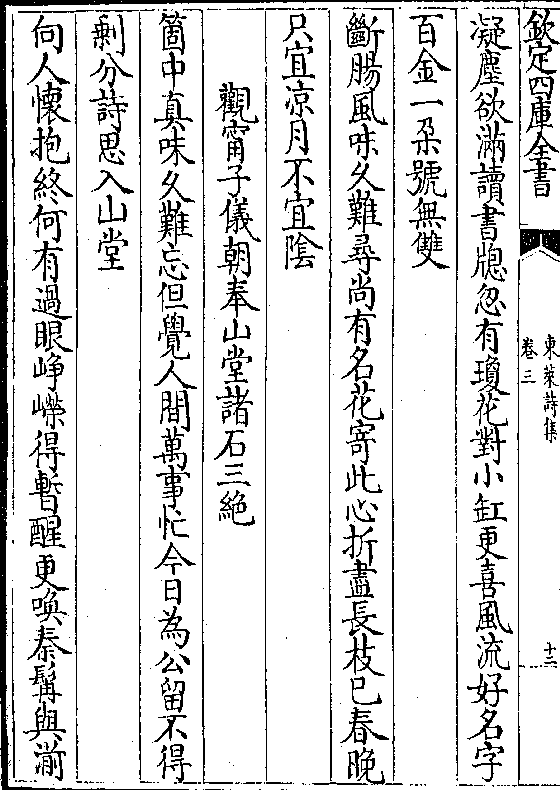 欽定四庫全書
東萊詩集
卷三
十三
凝塵欲滿讀書牕忽有瓊花對小缸更喜風流好名字
百金一朶號無雙
斷腸風味久難尋尚有名花寄此心折盡長枝已春晚
只宜凉月不宜隂
觀甯子儀朝奉山堂諸石三絶
箇中真味久難忘但覺人間萬事忙今日為公留不得
剰分詩思入山堂
向人懷抱終何有過眼峥嶸得暫醒更喚秦髯與湔